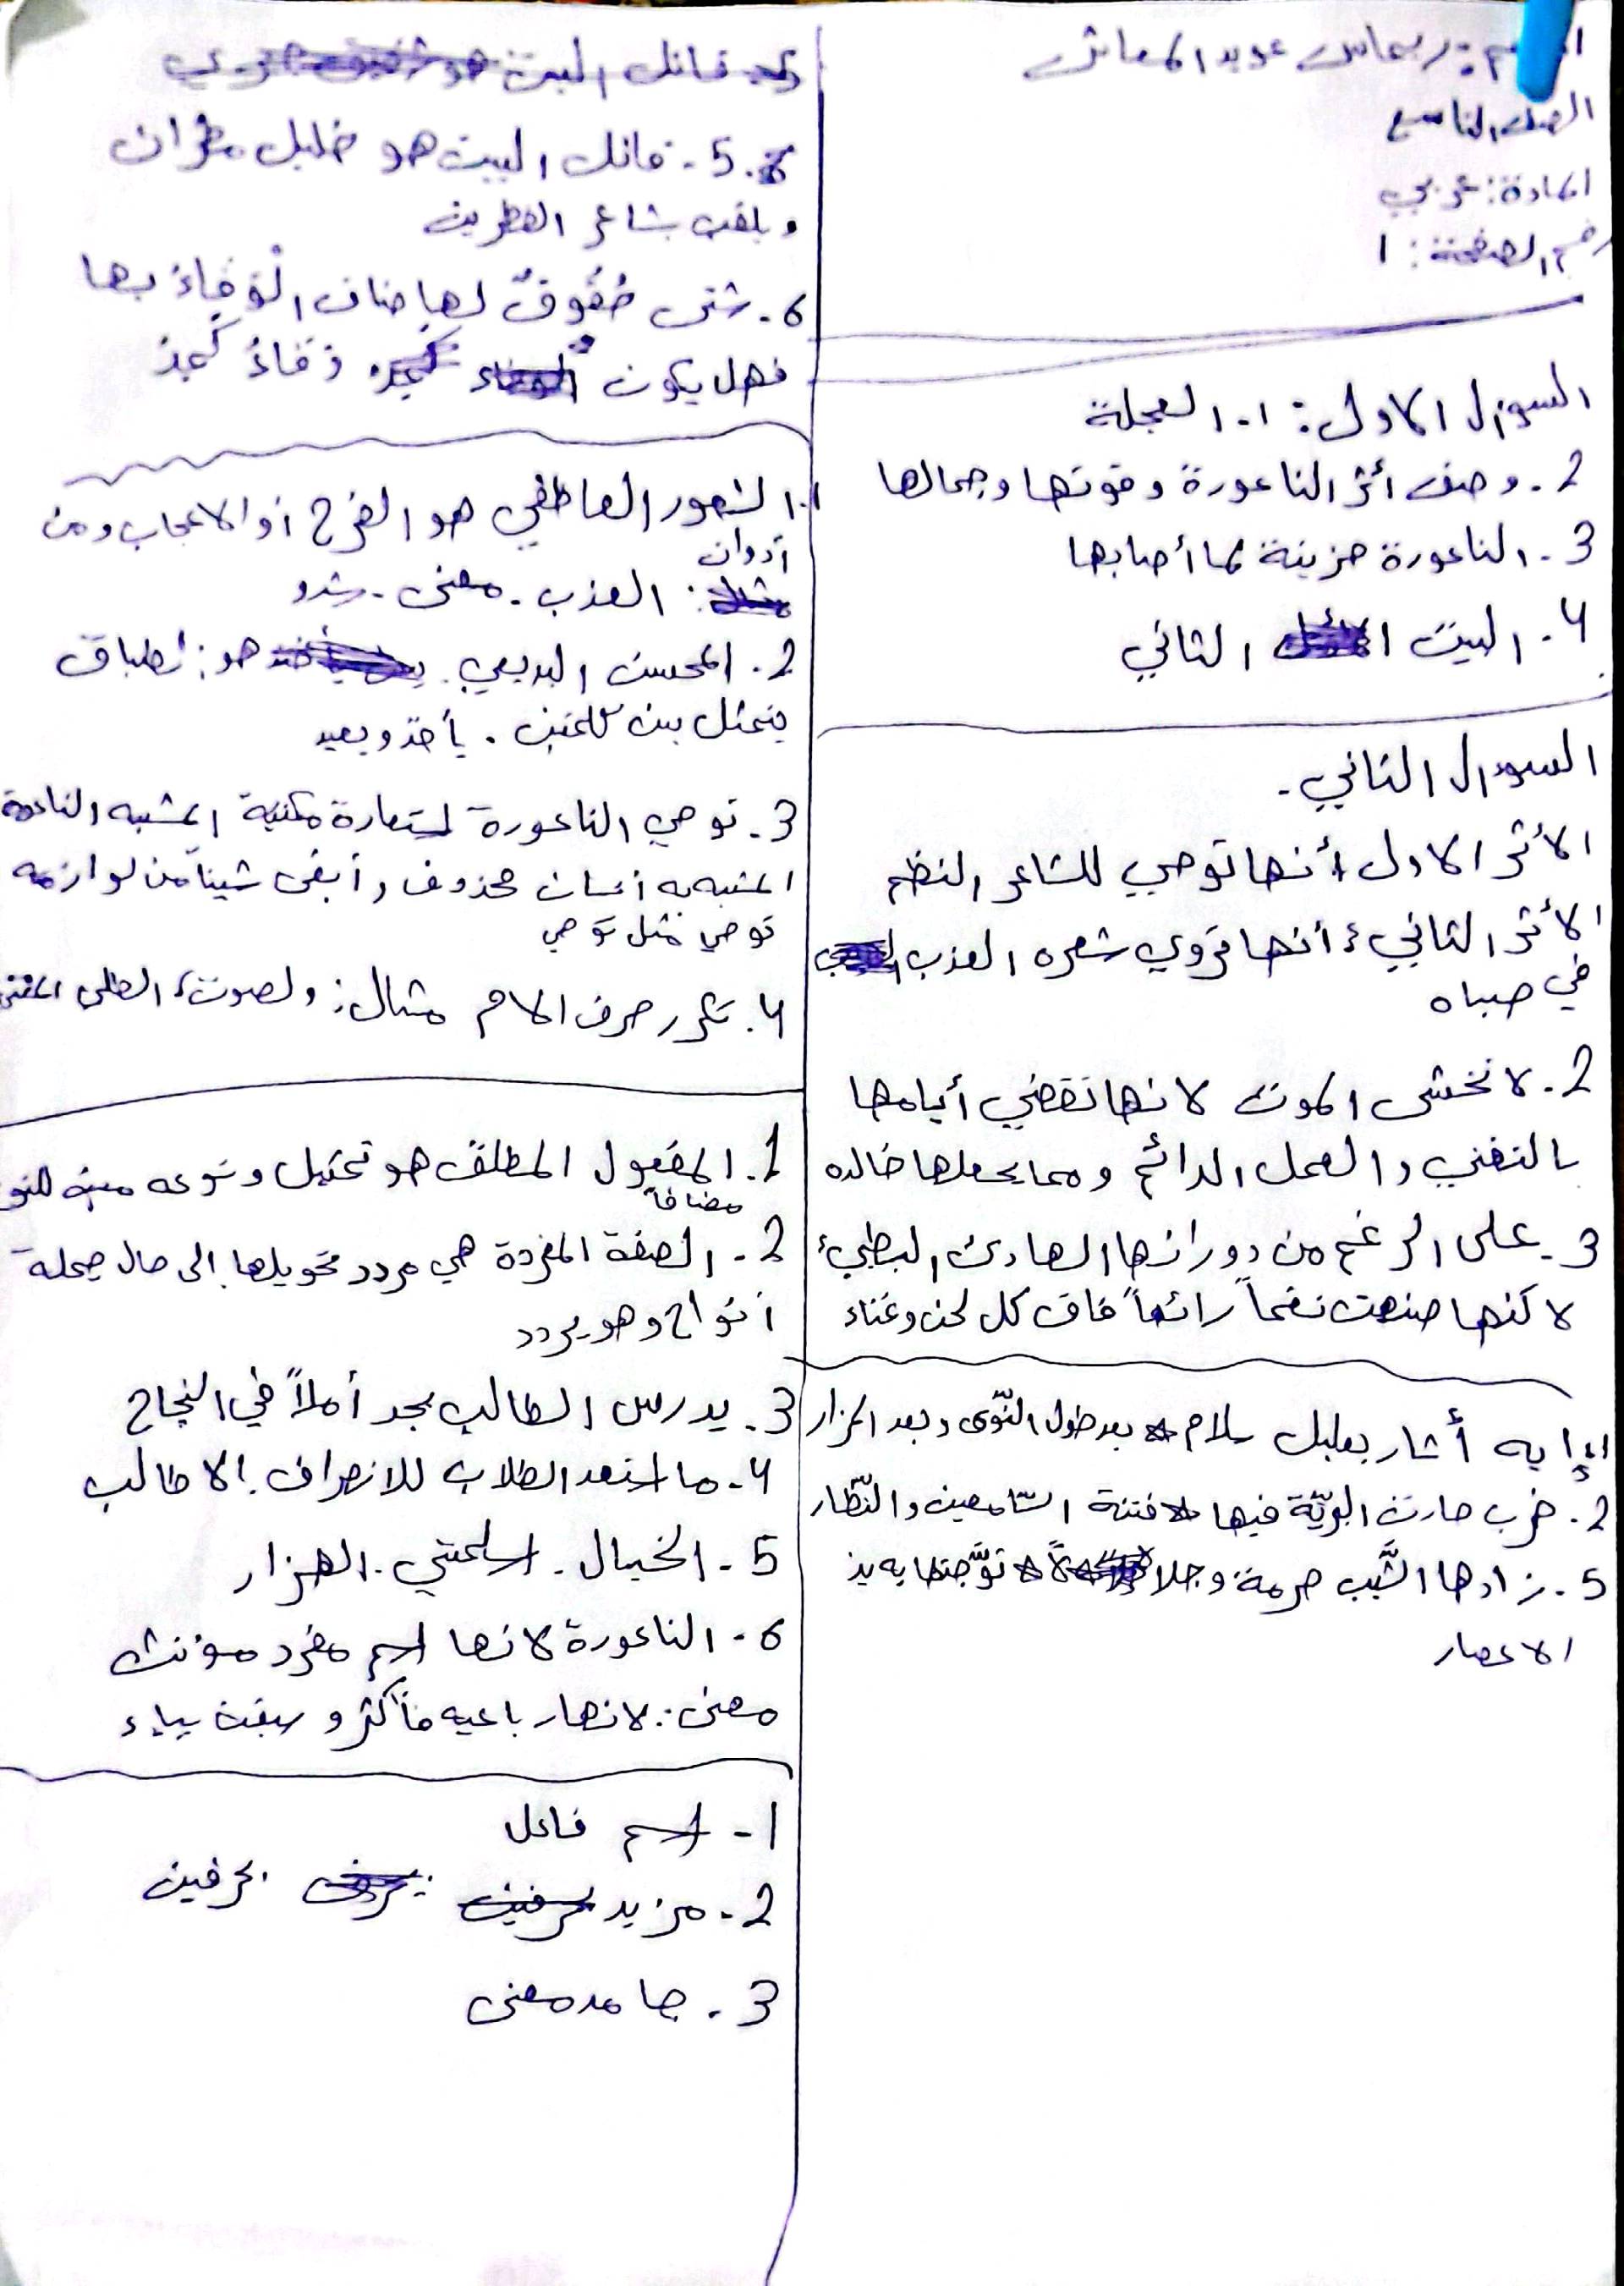 ريماس عويد المعاش
الصف التاسع
المادة: عربي
رقم الصفحة: 1
السؤال الاول: 1- العجلة
2- وصف أثر الناعورة وقوتها وجمالها
3- الناعورة حزينة لما أصابها
4- البيت الثاني
السؤال الثاني-
الأثر الاول أنها توحي للشاعر النظم
الأثر الثاني أنها تروي شعره العذب
في صباه
2- لا تخشى الموت لانها تقضي أيامها
بالتغني والعمل الدائم ومما يجعلها خالده
3- على الرغم من دورانها الهادئ البطيء
لاكنها صنعت نغماً رائعاً فاق كل لحن وغناء
إيه أثار بعلبك سلام * بعد طول النّوى وبعد المزار
2- خرب حارت البريّة فيها * فتنة السّامعين والنّظار
5- زادها الشَّيب حرمة وجلا * لاً توَّجتها به يد
الاعصار
قائل البيت
5- قائل البيت هو خليل مطران
ويلقب بشاعر القطرين
6- شتى حُقُوقٌ لها ضاف الْوفَاءُ بها
فهل يكون وفاءُ كمجد
1- الشعور العاطفي هو الفرح أو الاعجاب ومن
أدوات
العذب - مغنى - شدو
2- المحسن البديعي هو: لطباق
يتمثل بين كلمتين. يأخذ ويعيد
3- توحي الناعورة استعارة مكنية المشبه الناعورة
المشبه به أنسان محذوف وأبقى شيئاً من لوازمه
توحي مثل توحي
4- تكرر حرف الام مثال: ولصوت، الظلى المغنى
1- المفعول المطلق هو تمثيل ونوعه مبين للنوع
مضافاً
2- الصفة المفردة هي مردد تحويلها إلى حال جملة
أنواح وهو يردد
3- يدرس الطالب بجد أملاً في النجاح
4- ما استعد الطلاب للانصراف إلا طالب
5- الخيال - اسلمتي - الهزار
6- الناعورة لانها اسم مفرد مؤنث
مغنى: لانها رباعيه فأكثر و سبقت بياء
1- اسم فاعل
2- مزيد بحرفين
3- جامد معنى